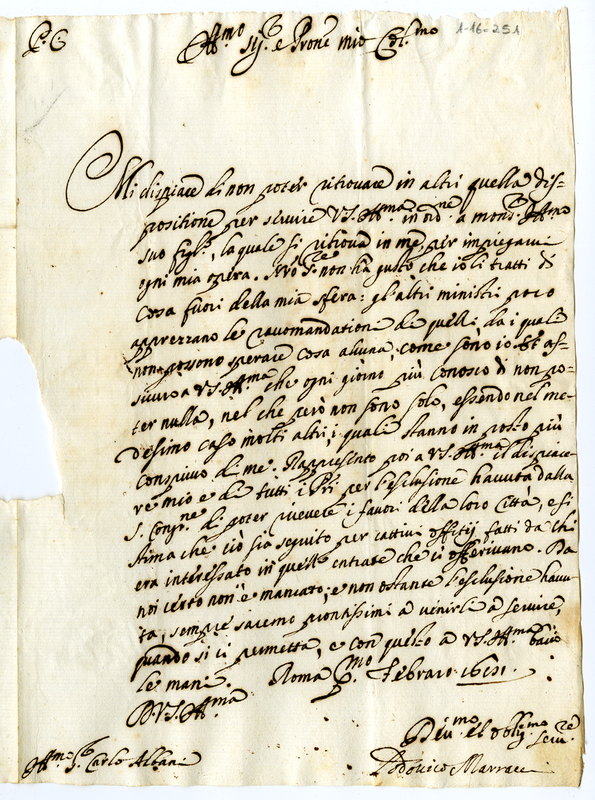 P. C.
Ill.mo Sig.r e Pron.e mio Col.mo
1-16-251
Mi dispiace di non poter ritrovare in altri quella dis-
positione per servire V.S. Ill.ma in ord.ne a mons.r Ill.mo
suo fig.lo, la quale si ritrova in me, per impiegarvi
ogni mia opera. N.ro S.re non ha gusto che io li tratti di
cosa fuori della mia sfera: gl'altri ministri poco
apprezzano le raccomandationi di quelli da i quali
non possono sperare cosa alcuna come sono io. Et as-
sicuro a V.S. Ill.ma che ogni giorno più conosco di non po-
ter nulla, nel che però non sono solo, essendo nel me-
desimo caso molti altri, i quali stanno in posto più
conspicuo di me. Rappresento poi a V.S. Ill.ma il dispiace-
re mio e di tutti i P.ri per l'esclusione havuta dalla
S. Cong.ne di poter ricevere i favori della loro città, e si
stima che ciò sia seguito per cattivi offitij fatti da chi
era interessato in quell'entrate che ci offerivano. Da
noi certo non è mancato; e non ostante l'esclusione havu-
ta, sempre saremo prontissimi a venirli a servire,
quando si ci permetta, e con questo a V.S. Ill.ma bacio
le mani. Roma p.mo Febraro 1651.
D. V.S. Ill.ma
Div.mo et obblig.mo serv.re
Ill.mo S. Carlo Albani
Lodovico Marracci